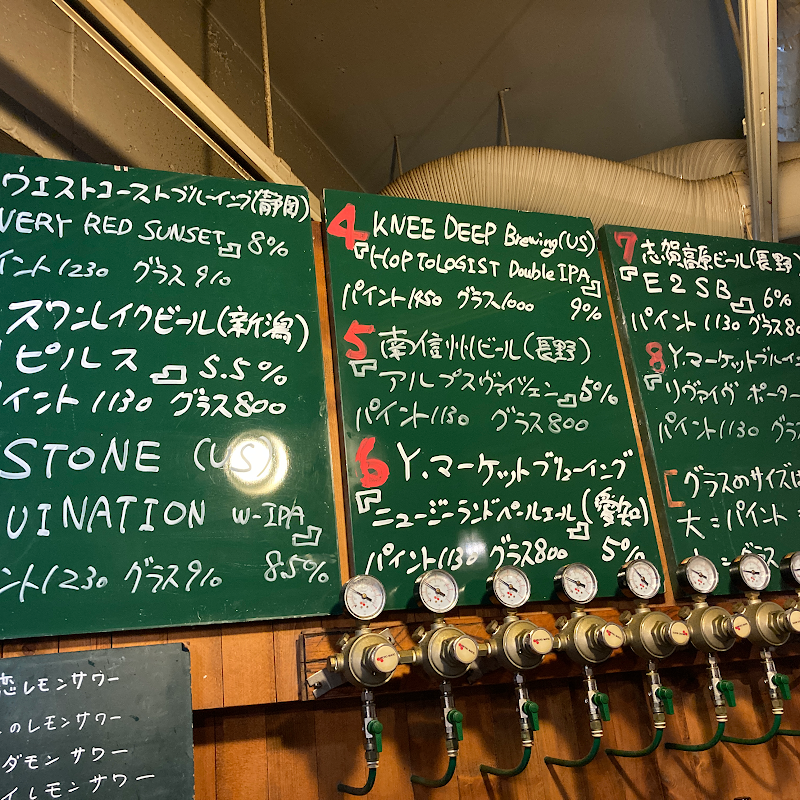 ウエストコーストブルーイング(静岡)
VERY RED SUNSET 8%
イント1230 グラス910
スワンレイクビール(新潟)
ピルス 5.5%
イント1130 グラス800
STONE (US)
UINATION W-IPA
ント1230 グラス910 8.5%
4 KNEE DEEP Brewing(US)
『HOPTOLOGIST Double IPA』
パイント1450 グラス1000 9%
5 南信州ビール(長野)
『アルプスヴァイツェン』5%
パイント1130 グラス800
6 Y.マーケットブリューイング
『ニュージーランドペールエール』(愛知)
パイント1130 グラス800 5%
7 志賀高原ビール(長野)
『E2SB』 6%
パイント1130 グラス80
8 Y.マーケットブルーイン
『リヴァイヴ ポーター
パイント1130 グラス
[グラスのサイズは
大=パイント
グラス
恋レモンサワー
のレモンサワー
ダモンサワー
イレモンサワー